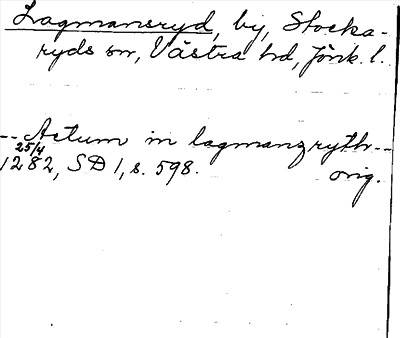 Lagmansryd, by, Stocka-
ryds sn, Västra hd, Jönk. l.
-- Actum in lagmanzryth--
25/4
1282, SD 1, s. 598. orig.